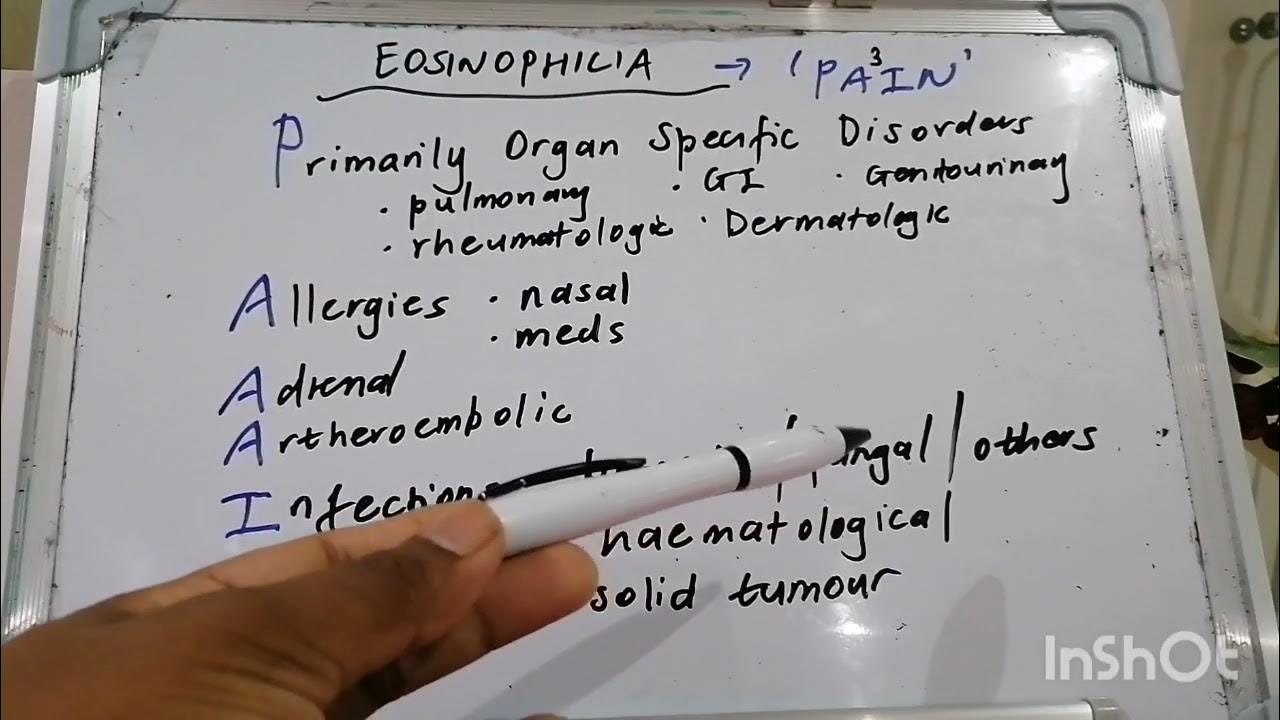 EOSINOPHILIA → 'PA³IN'
Primarily Organ Specific Disorders
• pulmonary • GI • Genitourinary
• rheumatologic • Dermatologic
Allergies • nasal
• meds
Adrenal
Artheroembolic
Infections / / others
haematological
solid tumour
InShOt